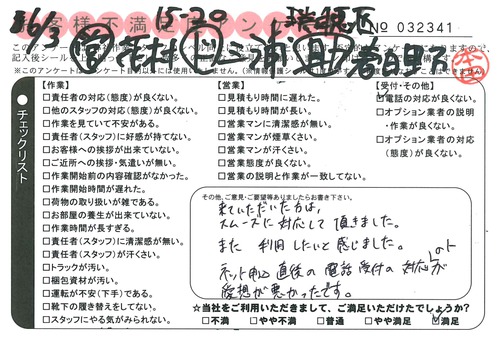 お客様不満足アンケート
15-20
瑞穂区
6/3
No 032341
㊞
春日野
チェックリスト
【作業】
□責任者の対応(態度)が良くない。
□他のスタッフの対応(態度)が良くない。
□作業を見ていて不安がある。
□責任者(スタッフ)に好感が持てない。
□お客様への挨拶が出来ていない。
□ご近所への挨拶・気遣いが無い。
□作業開始前の内容確認がなかった。
□作業開始時間が遅れた。
□荷物の取り扱いが雑である。
□お部屋の養生が出来ていない。
□作業時間が長すぎる。
□責任者(スタッフ)に清潔感が無い。
□責任者(スタッフ)が汗さい。
□トラックが汚い。
□梱包資材が汚い。
□運転が不安(下手)である。
□靴下の履き替えをしてない。
□スタッフにやる気がみられない。
【営業】
□見積もり時間に遅れた。
□見積もり時間が長い。
□営業マンに清潔感が無い。
□営業マンが煙草くさい。
□営業マンが汗さい。
□営業態度が良くない。
□営業の説明と作業が一致してない。
【受付・その他】
☑電話の対応が良くない。
□オプション業者の説明
・作業が良くない。
□オプション業者の対応
(態度)が良くない。
その他、ご意見・ご要望等ありましたらお書き下さい。
来ていただいた方は、
スムーズに対応して頂きました。
また 利用したいと感じました。
ネット申込直後の電話受付の対応が
愛想が悪かったです。
☆当社をご利用いただきまして、ご満足いただけたでしょうか?
□不満 □やや不満 □普通 □やや満足 ☑満足